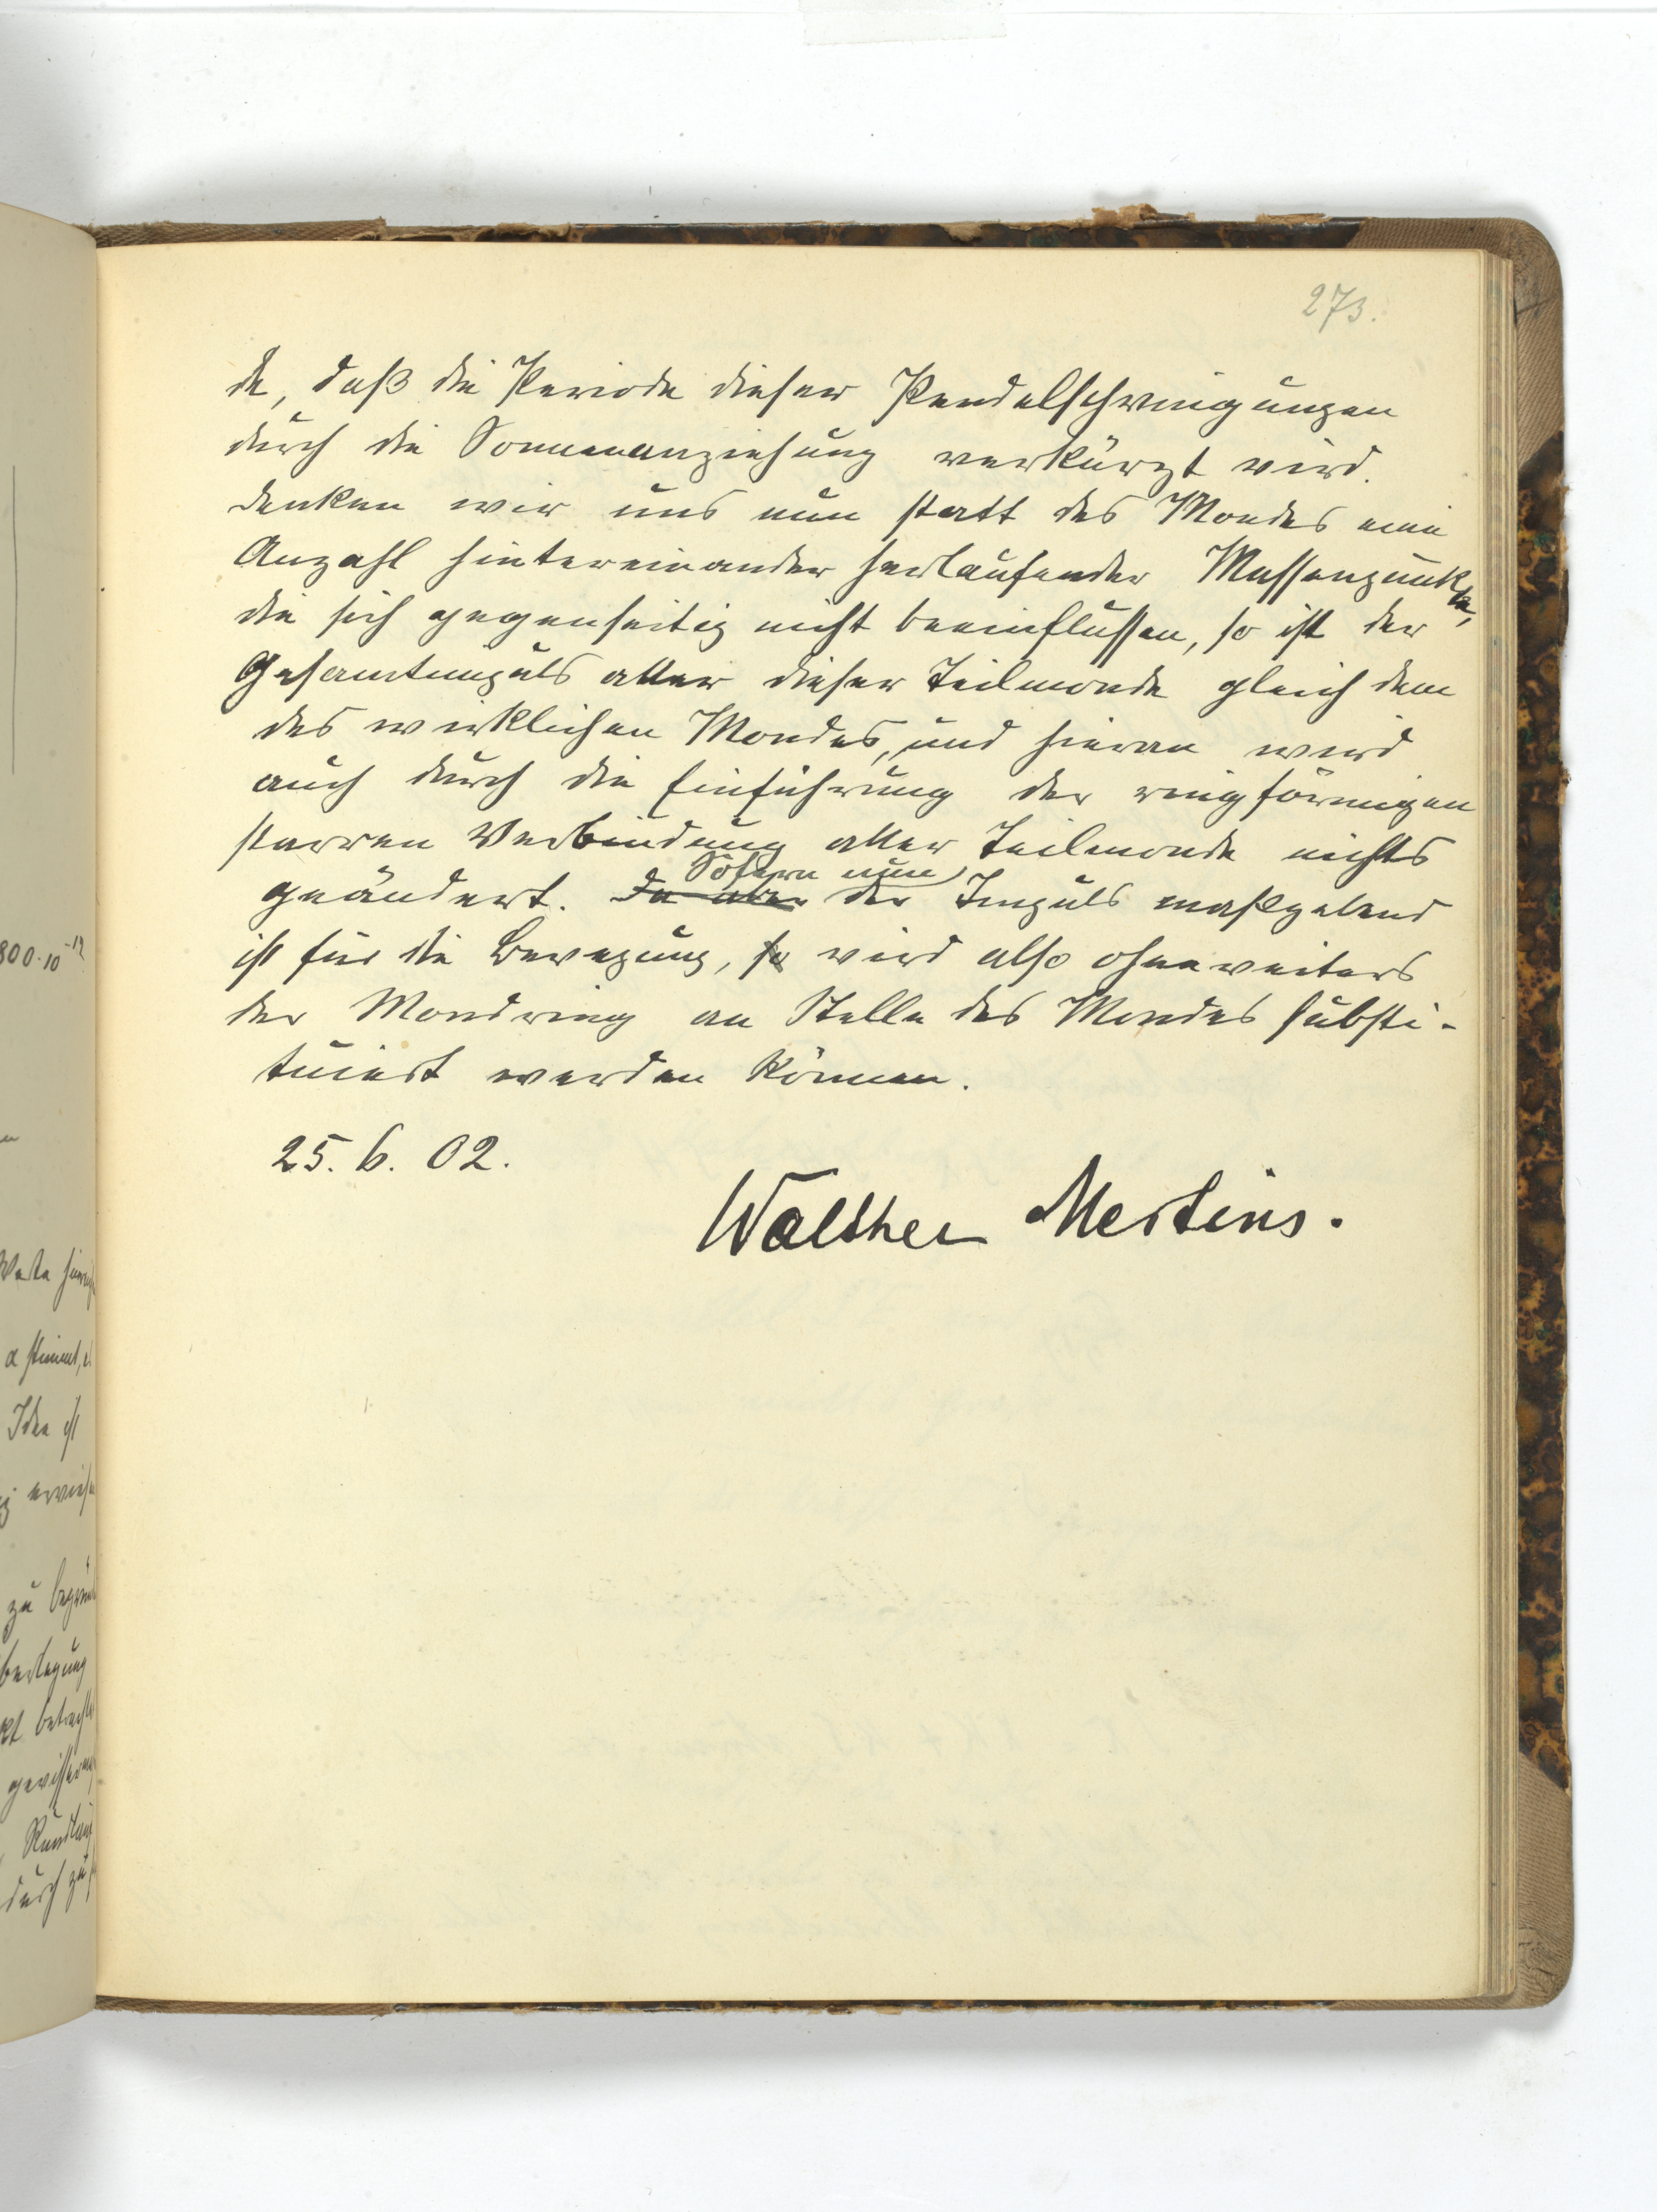 273.
de, daß die Periode dieser Pendelschwingungen
durch die Sonnenanziehung verkürzt wird.
Denken wir uns nun statt des Mondes eine
Anzahl hintereinander herlaufender Massenpunkte,
die sich gegenseitig nicht beeinflussen, so ist der
Gesamtimpuls aller dieser Teilmonde gleich dem
des wirklichen Mondes, und hieran wird
auch durch die Einführung der ringförmigen
starren Verbindung aller Teilmonde nichts
Sofern nun
geändert. Da aber der Impuls maßgebend
ist für die Bewegung, so wird also ohneweiters
der Mondring an Stelle des Mondes substi-
tuiert werden können.
25. 6. 02.
Walther Mertins.
800·10
Idee ist
zu
durch